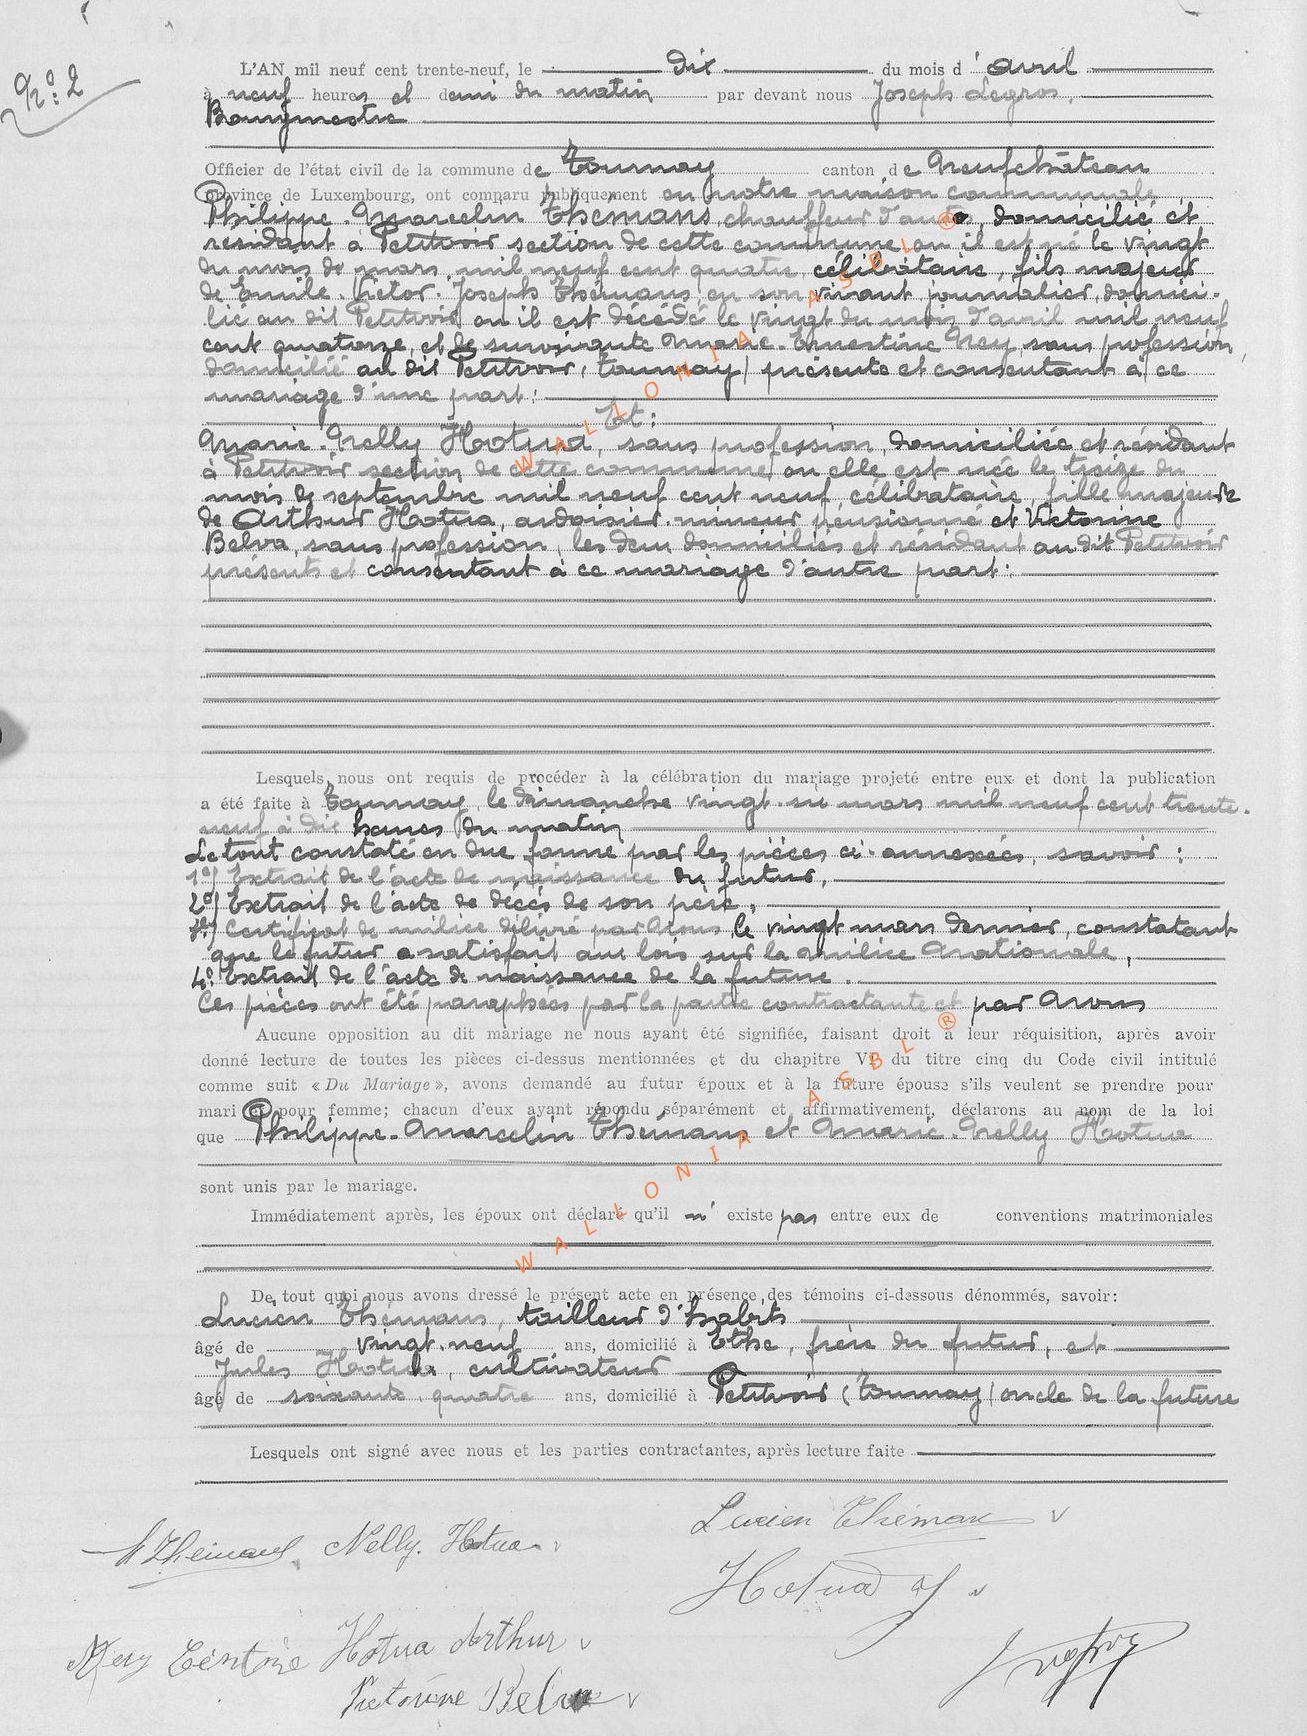 No: 2
L'AN mil neuf cent trente-neuf, le dix du mois d'avril
à neuf heures et demi du matin par devant nous Joseph Legros,
Bourgmestre
Officier de l'état civil de la commune de Tournay canton de Neufchâteau
province de Luxembourg, ont comparu publiquement en notre maison communale
Philippe-Marcelin Thémans, chauffeur d'auto, domicilié et
résidant à Petitvoir section de cette commune, ou il est né le vingt
du mois de mars mil neuf cent quatre, célibataire, fils majeur
de Emile-Victor-Joseph Thémans, en son vivant journalier, domici-
lié au dit Petitvoir ou il est décédé le vingt du mois d'avril mil neuf
cent quatorze, et de survivante Marie-Ernestine Ney sans profession,
domicilié au dit Petitvoir (Tournay) présente et consentant à ce
mariage d'une part:
Et:
Marie-Nelly Hotua, sans profession, domiciliée et résidant
à Petitvoir section de cette commune, ou elle est née le treize du
mois de septembre mil neuf cent neuf célibataire, fille majeure
de Arthur Hotua, ardoisier-mineur pensionné et Victorine
Belva, sans profession, les deux domiciliés et résidant au dit Petitvoir
présents et consentant à ce mariage d'autre part:
Lesquels nous ont requis de procéder à la célébration du mariage projeté entre eux et dont la publication
a été faite à Tournay, le dimanche vingt-six mars mil neuf cent trente-
neuf à dix heures du matin
Le tout constaté en due forme par les pièces ci-annexées, savoir:
1º) Extrait de l'acte de naissance du futur,
2º) Extrait de l'acte de décès de son père,
3º) Certificat de milice délivré par Nous le vingt mars dernier, constatant
que le futur a satisfait aux lois sur la Milice Nationale,
4º: Extrait de l'acte de naissance de la future.
Ces pièces ont été paraphées par la partie contractante et par Nous
Aucune opposition au dit mariage ne nous ayant été signifiée, faisant droit à leur réquisition, après avoir
donné lecture de toutes les pièces ci-dessus mentionnées et du chapitre VI du titre cinq du Code civil intitulé
comme suit « Du Mariage », avons demandé au futur époux et à la future épouse s'ils veulent se prendre pour
mari et pour femme; chacun d'eux ayant répondu séparément et affirmativement, déclarons au nom de la loi
que Philippe-Marcelin Thémans et Marie-Nelly Hotua
sont unis par le mariage.
Immédiatement après, les époux ont déclaré qu'il n'existe pas entre eux de conventions matrimoniales
De tout quoi nous avons dressé le présent acte en présence des témoins ci-dessous dénommés, savoir:
Lucien Thémans, tailleur d'habits
âgé de vingt-neuf ans, domicilié à Ethe, frère du futur, et
Jules Hotua, cultivateur
âgé de soixante quatre ans, domicilié à Petitvoir (Tournay) oncle de la future
Lesquels ont signé avec nous et les parties contractantes, après lecture faite
Lucien Thémans
M Thémans Nelly. Hotua
Hotua J
Ney Ernestine Hotua Arthur
Victorine Belva
WALLONIA ASBL ®
WALLONIA ASBL ®